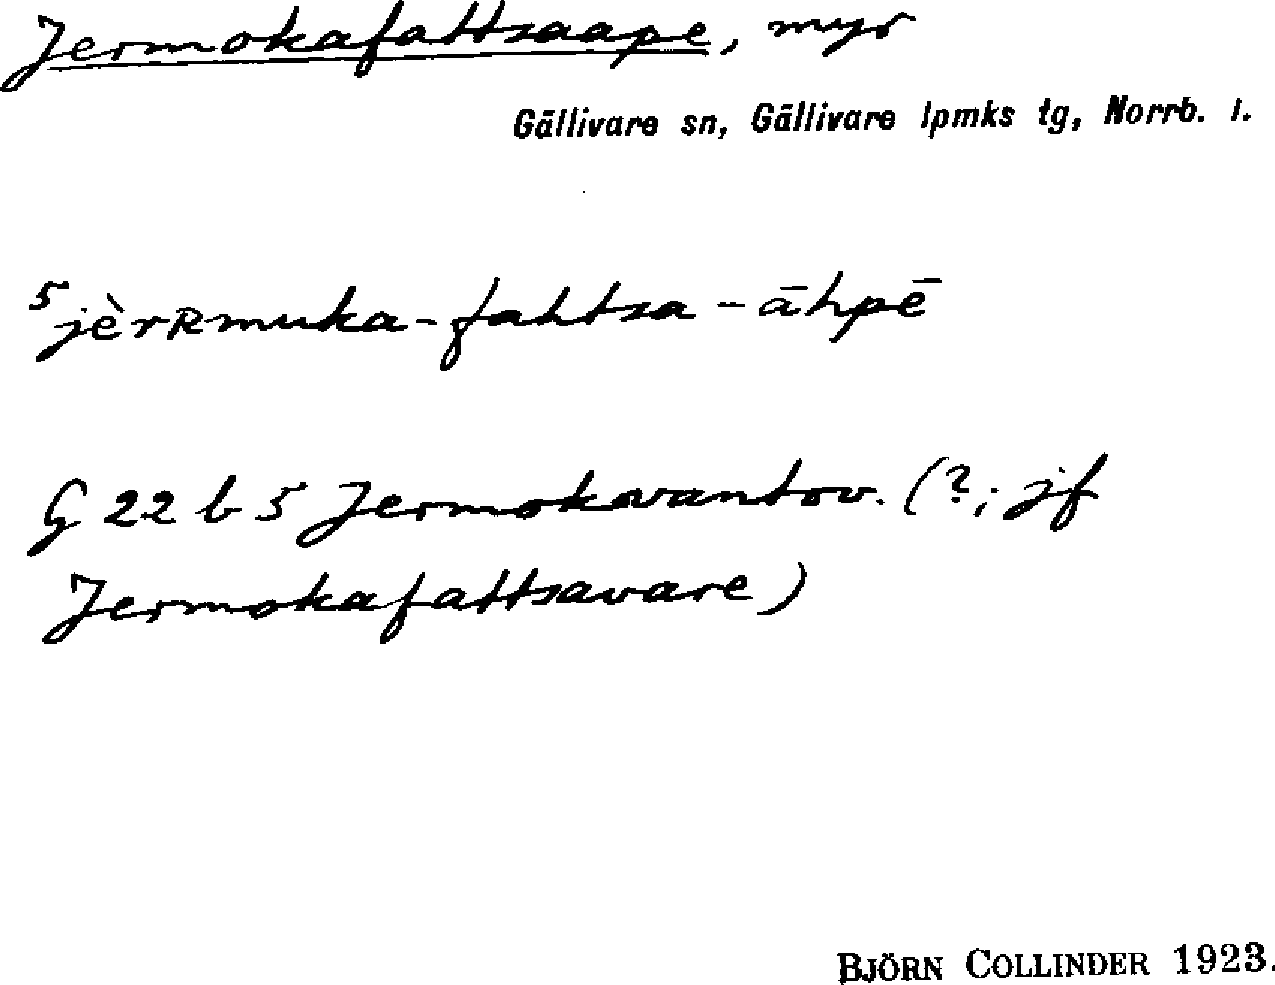 Jermokafattsaape, myr
Gällivare sn, Gällivare lpmks tg, Norrb. l.
5 jèrʀmuka-fahtsa-āhpē
G 22 b 5 Jermokavantov. (?; jf
Jermokafattsavare)
BJÖRN COLLINDER 1923.